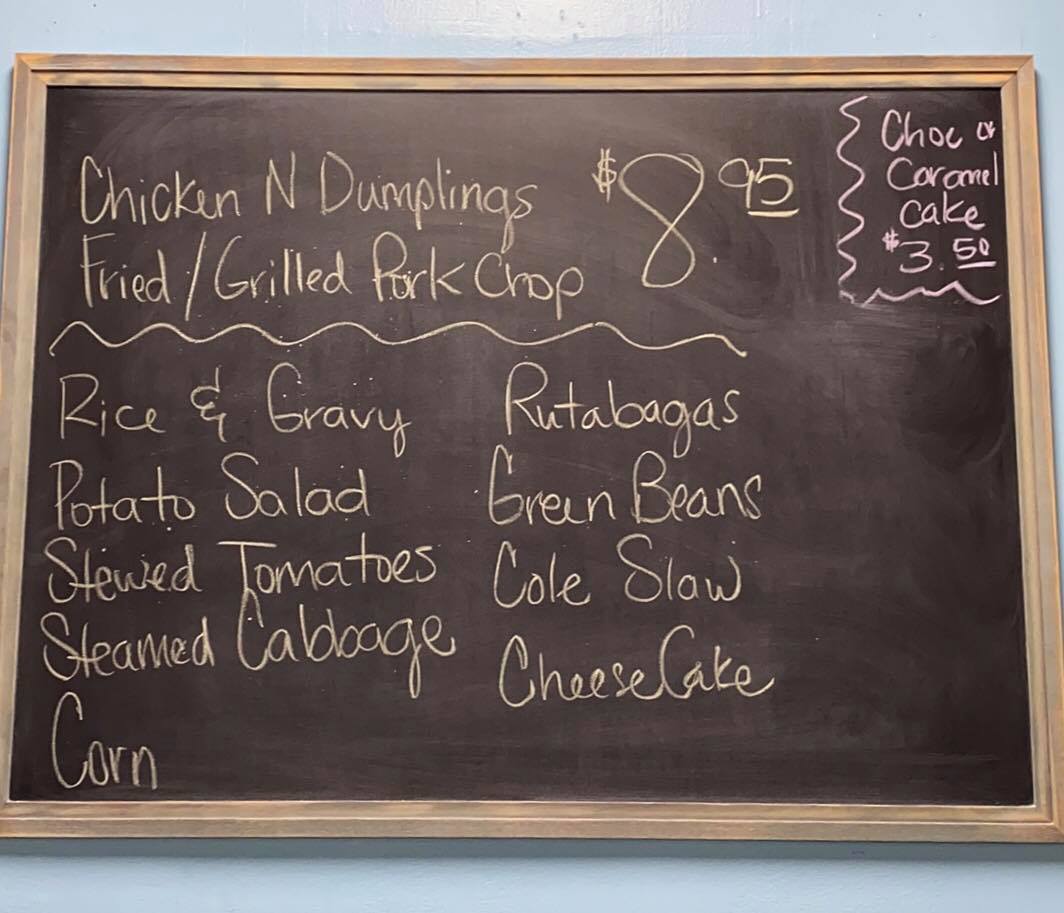 Chicken N Dumplings
Fried/Grilled Pork Chop
$8.95
Choc or
Caramel
Cake
$3.50
Rice & Gravy
Potato Salad
Stewed Tomatoes
Steamed Cabbage
Corn
Rutabagas
Green Beans
Cole Slaw
CheeseCake